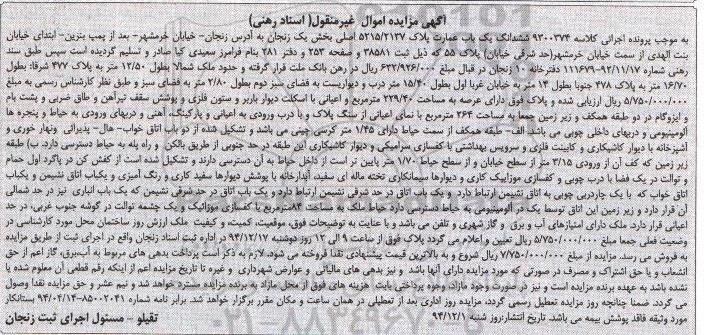 آگهی مزایده اموال غیرمنقول( اسناد رهنی)
به موجب پرونده اجرائی کلاسه ۹۳۰۰۳۷۴ ششدانگ یک باب عمارت پلاک ۵۲۱۵/۲۱۳۷ اصلی بخش یک زنجان به آدرس زنجان- خیابان خرمشهر- بعد از پمپ بنزین- ابتدای خیابان
بنت الهدی از سمت خیابان خرمشهر(حد شرقی خیابان) پلاک ۵۵ که ذیل ثبت ۳۸۵۸۱ و صفحه ۲۵۳ و دفتر ۲۸۱ بنام فرامرز سعیدی کیا صادر و تسلیم گردیده است سپس طبق سند
رهنی شماره ۱۱۱۶۷۹-۹۲/۱۱/۱۷ دفترخانه ۱۰ زنجان در قبال مبلغ ۶۳۲/۹۲۶/۰۰۰ ریال در رهن بانک ملت قرار گرفته و حدود ملک شمالا بطول ۱۲/۵۰ متر به پلاک ۴۷۷ شرقا: بطول
۱۶/۷۰ متر به پلاک ۴۷۸ جنوبا بطول ۱۴ متر به خیابان غربا اول بطول ۱۵/۴۰ متر درب و دیواریست به فضای سبز دوم بطول ۲/۸۰ متر به فضای سبز و طبق نظر کارشناس رسمی به مبلغ
۵/۷۵۰/۰۰۰/۰۰۰ ریال ارزیابی شده و پلاک فوق دارای عرصه به مساحت ۲۲۹/۴۰ مترمربع و اعیانی با اسکلت دیوار باربر و ستون فلزی و پوشش سقف تیرآهن و طاق ضربی و پشت بام
و ایزوگام در دو طبقه همکف و زیر زمین جمعا به مساحت ۲۶۴ مترمربع با نمای اعیانی از سنگ پلاک و با درب ورودی به اعیانی و پارکینگ، آهنی و دربهای ورودی به حیاط و پنجره ها
آلومینیومی و دربهای داخلی چوبی می باشد. الف- طبقه همکف از سمت حیاط دارای ۱/۴۵ متر کرسی چینی می باشد و تشکیل شده از دو باب اتاق خواب- هال- پذیرائی ونهار خوری و
آشپزخانه با دیوار کاشیکاری و کابینت فلزی و سرویس بهداشتی با کفسازی سرامیکی و دیوار کاشیکاری این طبقه در حد جنوبی از طریق بالکن و راه پله به حیاط دسترسی دارد. ب) طبقه
زیر زمین که کف آن از ورودی ۳/۱۵ متر از سطح خیابان و از سطح حیاط ۱/۷۰ متر پایین تر است از داخل حیاط به آن دسترسی دارند و تشکیل شده است از کفش کن در پاگرد اول حمام
و توالت در یک فضا با درب چوبی و کفسازی موزاییک کاری و دیوارها سیمانکاری تخته ماله ای سفید، آبدارخانه با پوشش دیوارها سفید کاری و رنگ آمیزی و یکباب اتاق نشیمن و یکباب
اتاق خواب که با یک چاردربی چوبی به اتاق نشیمن ارتباط دارد و یک باب اتاق در حد شرقی نشیمن ارتباط دارد و یک باب اتاق در حد شرقی نشیمن که یک باب انباری نیز در حد شمالی
آن قرار دارد و زیر زمین این اتاق توسط یک در آلومینیومی به حیاط دسترسی دارد حیاط ملک به مساحت ۸۴مترمربع با کفسازی موزائیک و یک چشمه توالت در گوشه جنوب غربی، در حد
اعیانی قرار دارد، ملک دارای امتیازهای آب و برق و گاز شهری و تلفن می باشد و با عنایت به توضیحات فوق، موقعیت، کمیت، و کیفیت ملک ارزش روز ساختمان محل مورد کارشناسی در
وضعیت فعلی جمعا مبلغ ۵/۷۵۰/۰۰۰/۰۰۰ ریال تعیین و اعلام می گردد پلاک فوق از ساعت ۹ الی ۱۲ روز دوشنبه ۹۴/۱۲/۱۷ در اداره ثبت اسناد زنجان واقع در اجرای ثبت از طریق مزایده
به فروش می رسد. مزایده از مبلغ ۷/۷۵۰/۰۰۰/۰۰۰ ریال شروع و به بالاترین قیمت پیشنهادی نقدا فروخته می شود، لازم به ذکر است پرداخت بدهی های مربوط به آب،برق، گاز اعم از حق
انشعاب و یا حق اشتراک و مصرف در صورتی که مورد مزایده دارای آنها باشد و نیز بدهی های مالیاتی و عوارض شهرداری و غیره تا تاریخ مزایده اعم از اینکه رقم قطعی آن معلوم شده یا
نشده باشد به عهده برنده مزایده است و نیز در صورت وجود مازاد، وجوه پرداختی بابت هزینه های فوق از محل مازاد به برنده مزایده مسترد خواهد شد و نیم عشر و حق مزایده نقدا وصول
می گردد. ضمنا چنانچه روز مزایده تعطیل رسمی گردد، مزایده روز اداری بعد از تعطیلی در همان ساعت و مکان مقرر برگزار خواهد شد. برابر نامه شماره ۸۵۰۰۲۰۴۱-۹۴/۰۴/۱۴ بستانکار
مورد وثیقه فاقد پوشش بیمه می باشد. تاریخ انتشار:روز شنبه ۹۴/۱۲/۱
تقیلو - مسئول اجرای ثبت زنجان